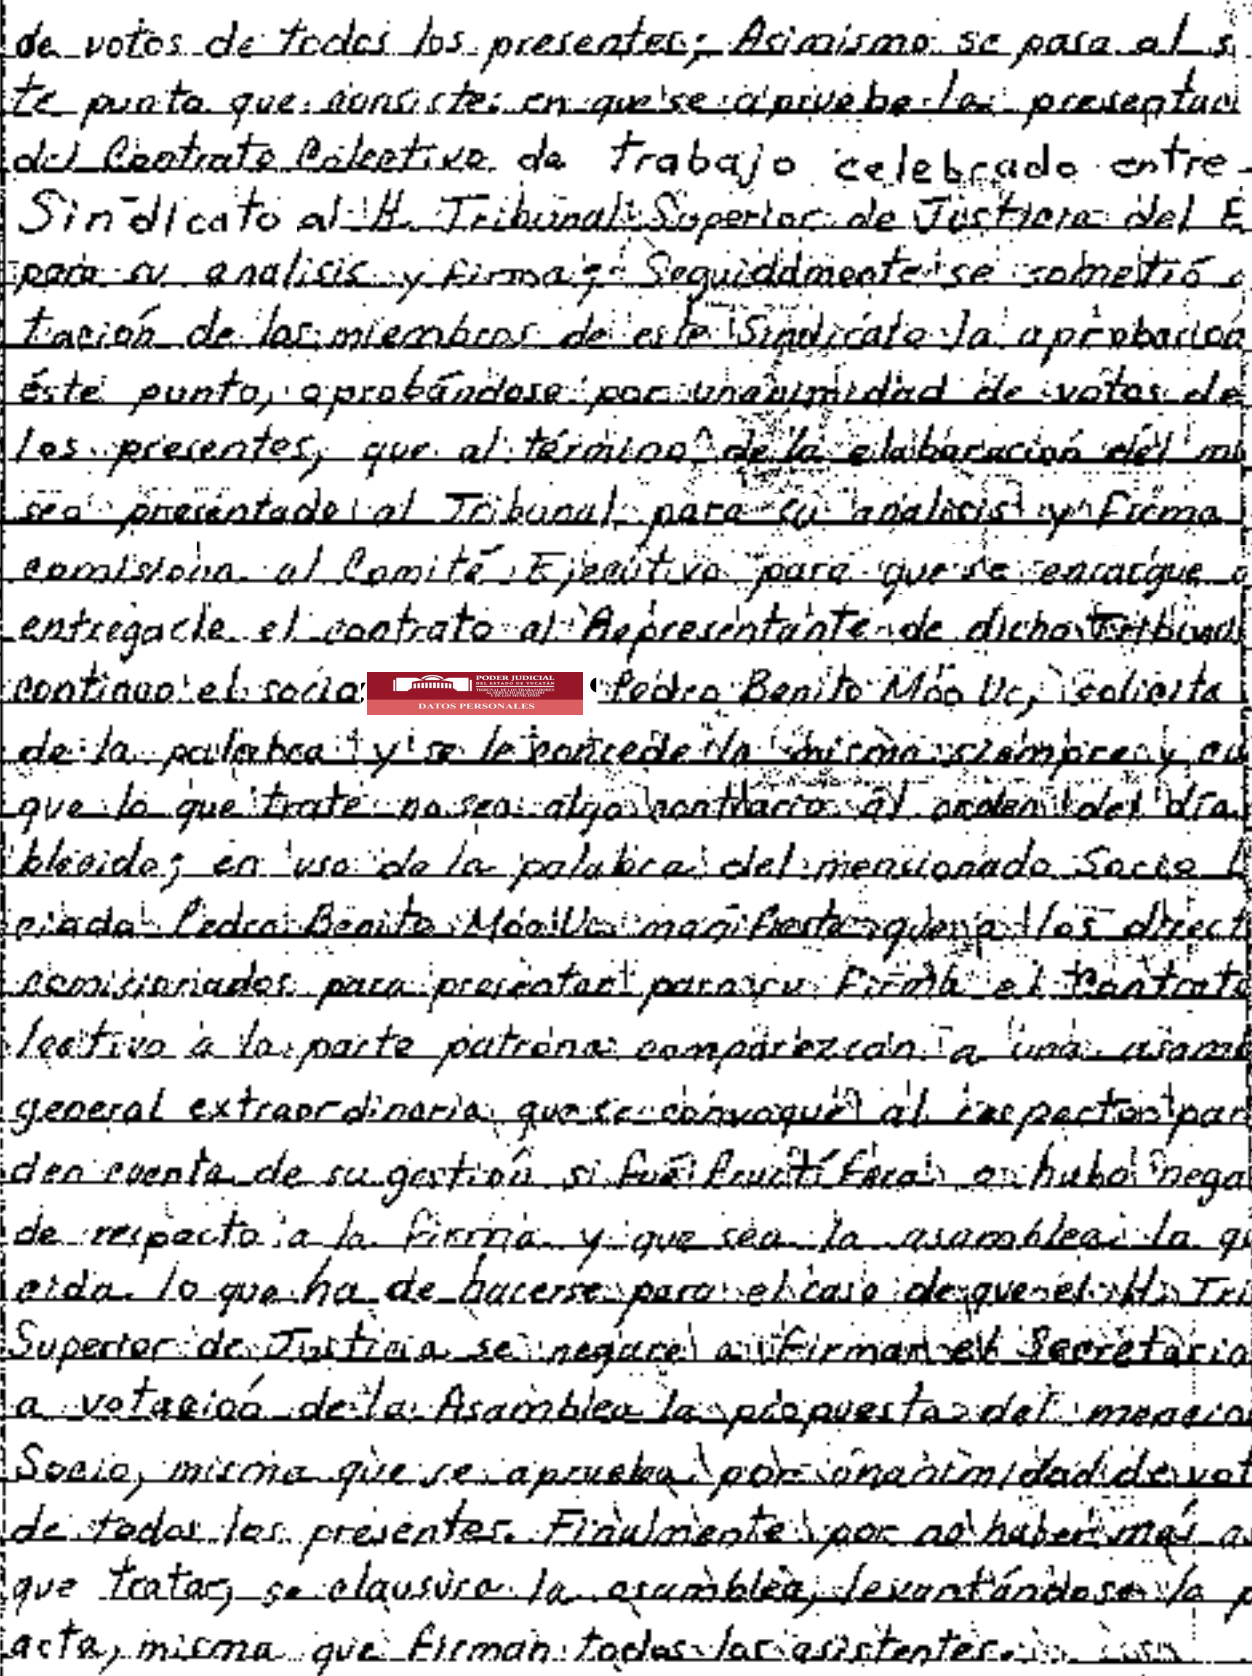 de votos de todos los presentes; Asimismo se pasa al s
te punto que consiste: en que se apruebe la presentaci
del Contrato Colectivo de trabajo celebrado entre
Sindicato al H. Tribunal Superior de Justicia del E
para su analisis y firma; Seguidamente se sometió a
tación de los miembros de este Sindicato la aprobación
éste punto, aprobándose por unanimidad de votos de
los presentes, que al término de la elaboración del m
sea presentado al Tribunal para su analisis y firma
comisiona al Comité Ejecutivo para que se encargue
entregarle el contrato al Representante de dicho Tribunal
continuo el socio
PODER JUDICIAL
DEL ESTADO DE YUCATÁN
DATOS PERSONALES
Pedro Benito Moo Uc, solicita
de la palabra y se le concede la misma siempre y cu
que lo que trate no sea algo contrario al orden del día
blecido; en uso de la palabra del mencionado Socio L
ciado Pedro Benito Moo Uc manifiesta que a los direct
comisionados para presentar para su firma el Contrato
lectivo a la parte patrona comparezcan a una asam
general extraordinaria que se convoque al respecto par
den cuenta de su gestión si fué fructífera o hubo nega
de respecto a la firma y que sea la asamblea la q
cida lo que ha de hacerse para el caso de que el H. Tri
Superior de Justicia se negare a firmar el Secretario
a votación de la Asamblea la propuesta del mencion
Socio, misma que se aprueba por unanimidad de vot
de todos los presentes. Finalmente por no haber más a
que tratar, se clausura la asamblea, levantándose la p
acta, misma que firman todos los asistentes.